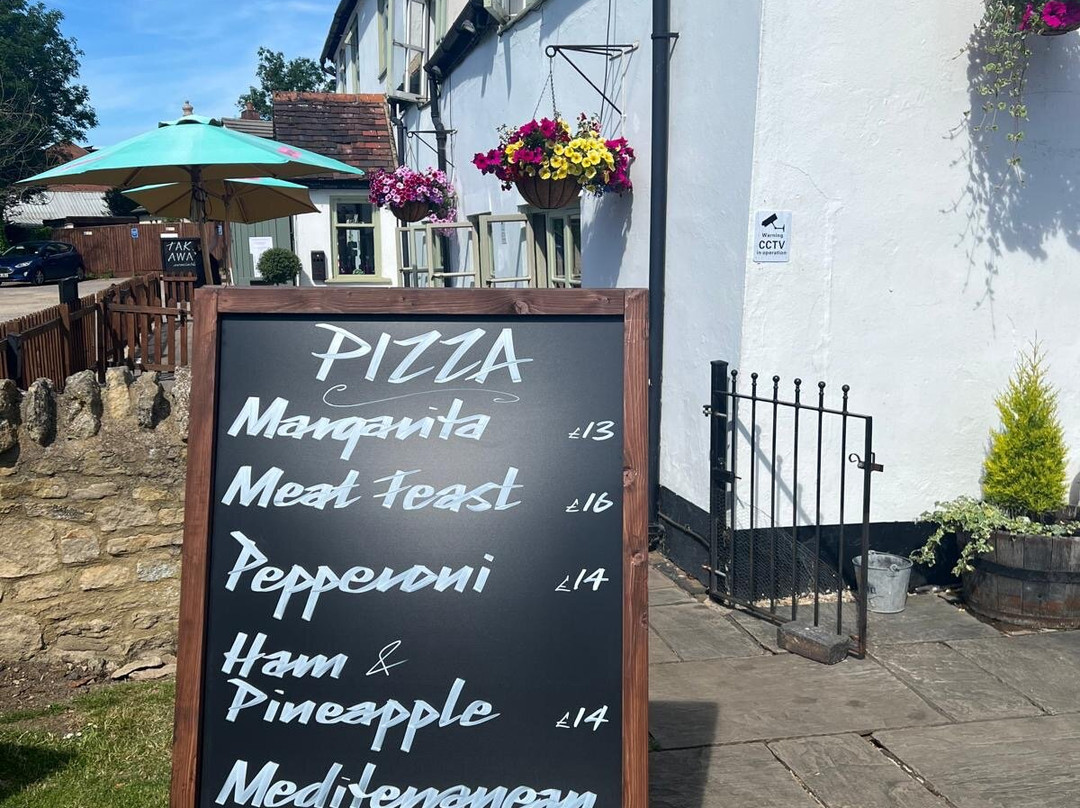 TAK
AWA
Warning
CCTV
in operation
PIZZA
Margarita £13
Meat Feast £16
Pepperoni £14
Ham &
Pineapple £14
Mediterranean